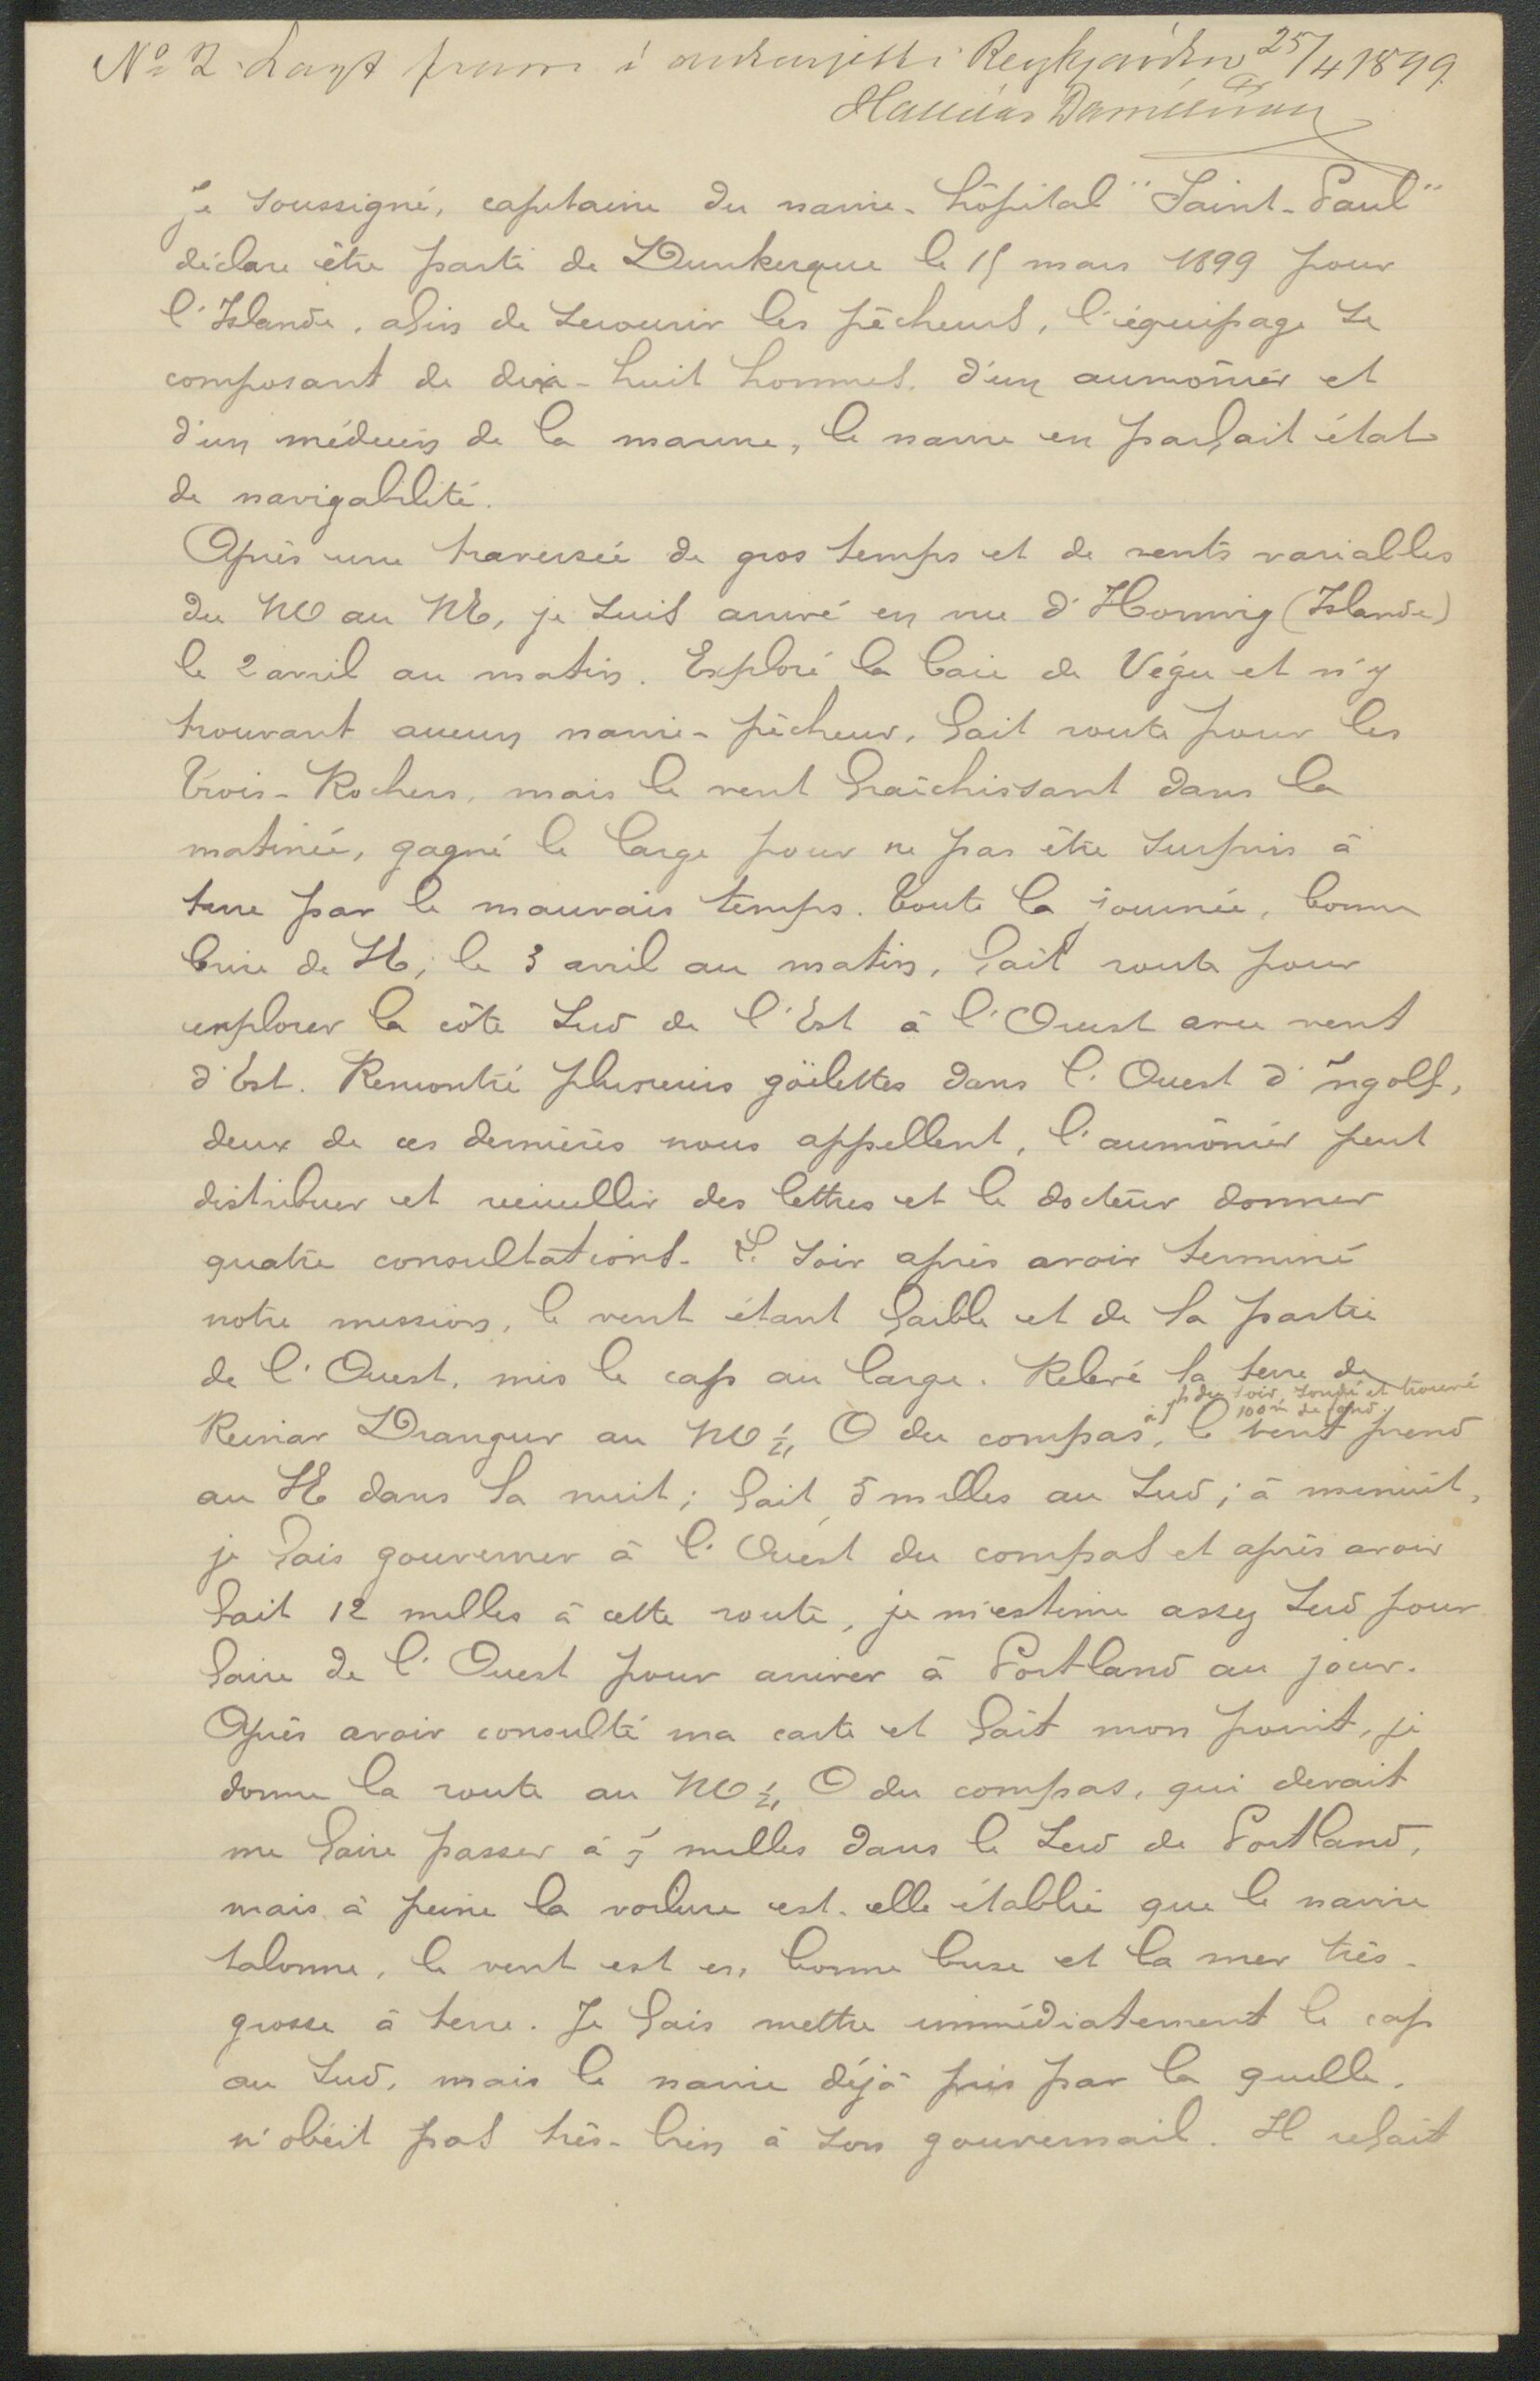 No 2. Lagt fram í aukarjetti Reykjavíkur 25/4 1899.
Halldór Daníelsson
Je soussigné, capitaine du navire-hôpital "Saint-Paul"
déclare être parti de Dunkerque le 15 mars 1899 pour
l'Islande, afin de secourir les pêcheurs, l'équipage se
composant de dix-huit hommes, d'un aumônier et
d'un médecin de la marine, le navire en parfait état
de navigabilité.
Après une traversée de gros temps et de vents variables
du NO au NE, je suis arrivé en vue d'Hornvig (Islande)
le 2 avril au matin. Exploré la baie de Végu et n'y
trouvant aucun navire-pêcheur, fait route pour les
Trois-Rochers, mais le vent fraîchissant dans la
matinée, gagné le large pour ne pas être surpris à
terre par le mauvais temps. Toute la journée, bonne
brise de SE; le 3 avril au matin, fait route pour
explorer la côte Sud de l'Est à l'Ouest avec vent
d'Est. Rencontré plusieurs goëlettes dans l'Ouest d'Ingolf,
deux de ces dernières nous appellent, l'aumônier peut
distribuer et recueillir des lettres et le docteur donner
quatre consultations. Le soir après avoir terminé
notre mission, le vent étant faible et de la partie
de l'Ouest, mis le cap au large. Relevé la terre de
à 7h du soir, sondé et trouvé
100m de fond.
Reinar Drangur au NO ½ O du compas, le vent prend
au SE dans la nuit; fait 5 milles au Sud; à minuit,
je fais gouverner à l'Ouest du compas et après avoir
fait 12 milles à cette route, je m'estime assez Sud pour
faire de l'Ouest pour arriver à Portland au jour.
Après avoir consulté ma carte et fait mon point, je
donne la route au NO ½ O du compas, qui devait
me faire passer à 5 milles dans le Sud de Portland,
mais à peine la voilure est-elle établie que le navire
talonne, le vent est en bonne brise et la mer très-
grosse à terre. Je fais mettre immédiatement le cap
au Sud, mais le navire déjà pris par la quille,
n'obéit pas très-bien à son gouvernail. Il refait